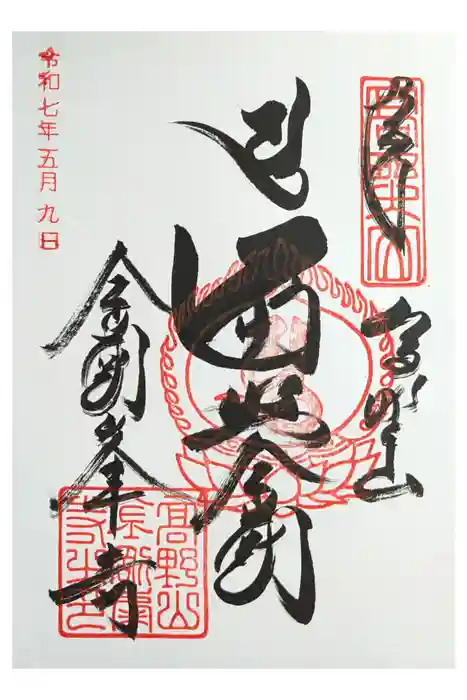 奉拝
高野山
遍照金剛
金剛峯寺
令和七年五月九日
高野山